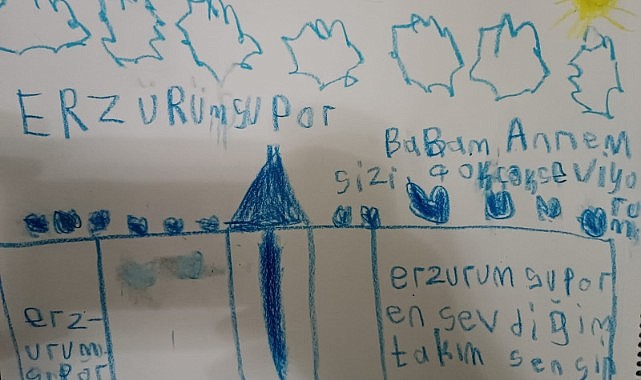 ERZÜRÜmsuPor
BaBam, Annem
sizi, çokçokseviyo
rum
erzurumsupor
en sevdiğim
takım sensin
erz-
urum
supor